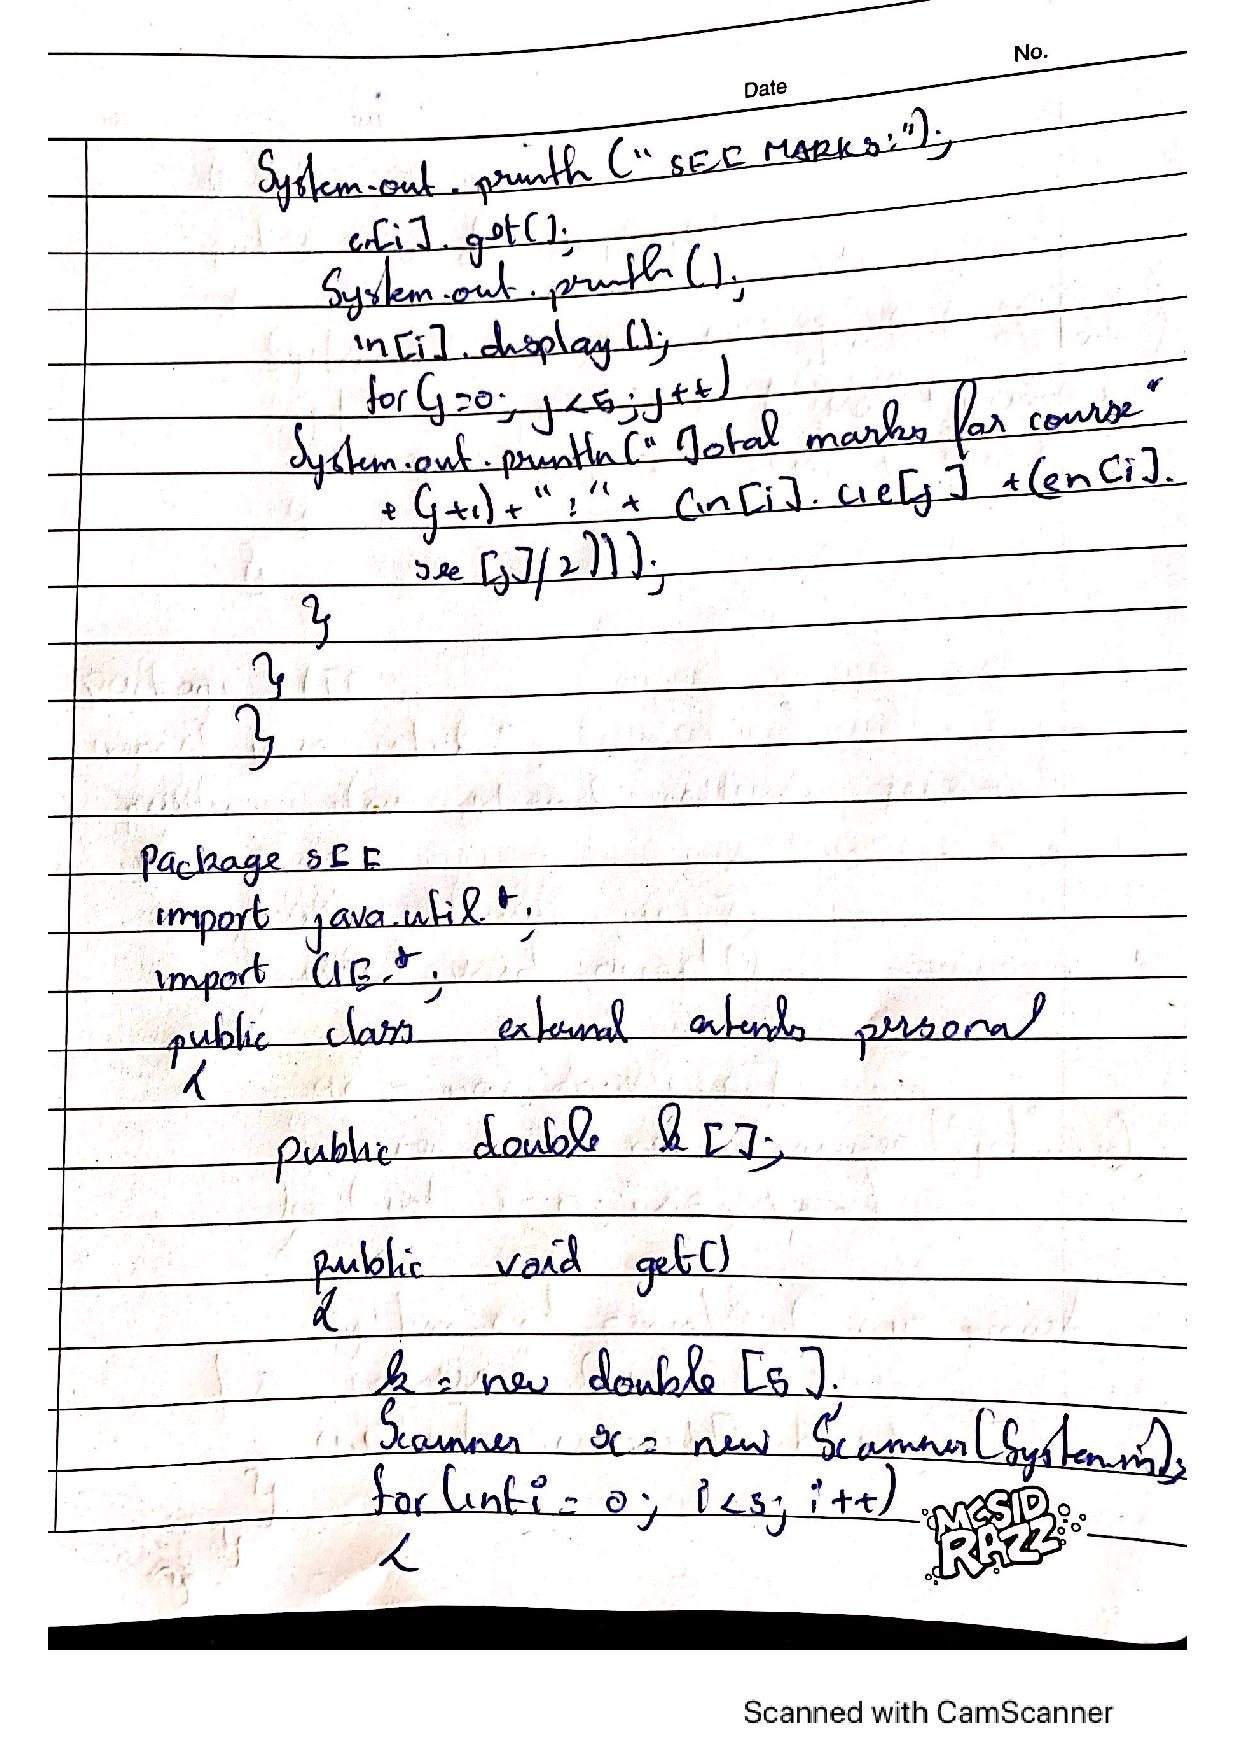 No.
Date
System.out.println (" SEE MARKS:");
en[i]. get();
System.out.println ();
in[i]. display ();
for(j=0; j<5; j++)
System.out.println (" Total marks for course"
+ (j+1) + " : " + (in[i]. cie[j] + (en[i].
see [j]/2)));
}
}
}
Package SEE
import java.util.*;
import CIE.*;
public class external extends personal
{
public double k [];
public void get()
{
k = new double [5];
Scanner sc = new Scanner(System.in);
for(int i = 0; i<5; i++)
{
MCSID
RAZZ
Scanned with CamScanner